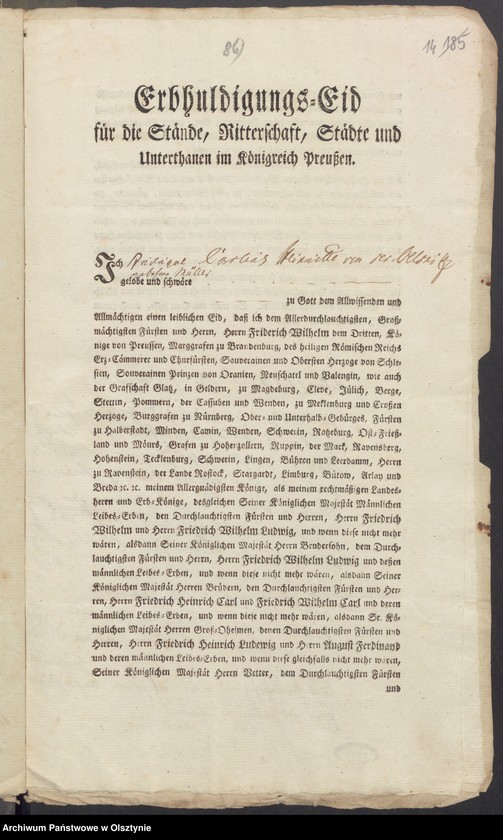 86)
14
185
Erbhuldigungs-Eid
für die Stände, Ritterschaft, Städte und
Unterthanen im Königreich Preußen.
Ich Henriette von der
gebohrne Müller
gelobe und schwöre
zu Gott dem Allwissenden und
Allmächtigen einen leiblichen Eid, daß ich dem Allerdurchlauchtigsten, Groß-
mächtigsten Fürsten und Herrn, Herrn Friderich Wilhelm dem Dritten, Kö-
nige von Preussen, Marggrafen zu Brandenburg, des heiligen Römischen Reichs
Erz-Cämmerer und Churfürsten, Souverainen und Obersten Herzoge von Schle-
sien, Souverainen Prinzen von Oranien, Neuschatel und Valengin, wie auch
der Grafschaft Glatz, in Geldern, zu Magdeburg, Cleve, Jülich, Berge,
Stettin, Pommern, der Cassuben und Wenden, zu Meklenburg und Croßen
Herzoge, Burggrafen zu Nürnberg, Ober- und Unterhalb-Gebürges, Fürsten
zu Halberstadt, Minden, Camin, Wenden, Schwerin, Ratzeburg, Ost-Frieß-
land und Möurs, Grafen zu Hohenzollern, Ruppin, der Mark, Ravensberg,
Hohenstein, Tecklenburg, Schwerin, Lingen, Bühren und Leerdamm, Herrn
zu Ravenstein, der Lande Rostock, Stargardt, Limburg, Bütow, Arlay und
Breda ꝛc. ꝛc. meinem Allergnädigsten Könige, als meinem rechtmäßigen Landes-
herrn und Erb-Könige, desgleichen Seiner Königlichen Majestät Männlichen
Leibes-Erben, den Durchlauchtigsten Fürsten und Herren, Herrn Friedrich
Wilhelm und Herrn Friedrich Wilhelm Ludwig, und wenn diese nicht mehr
wären, alsdann Seiner Königlichen Majestät Herrn Brudersohn, dem Durch-
lauchtigsten Fürsten und Herrn, Herrn Friedrich Wilhelm Ludwig und deßen
männlichen Leibes-Erben, und wenn diese nicht mehr wären, alsdann Seiner
Königlichen Majestät Herren Brüdern, den Durchlauchtigsten Fürsten und Her-
ren, Herrn Friedrich Heinrich Carl und Friedrich Wilhelm Carl und deren
männlichen Leibes-Erben, und wenn diese nicht mehr wären, alsdann Sr. Kö-
niglichen Majestät Herren Groß-Oheimen, denen Durchlauchtigsten Fürsten und
Herren, Herrn Friedrich Heinrich Ludewig und Herrn August Ferdinand
und deren männlichen Leibes-Erben, und wenn diese gleichfalls nicht mehr wären,
Seiner Königlichen Majestät Herrn Vetter, dem Durchlauchtigsten Fürsten
und
Archiwum Państwowe w Olsztynie